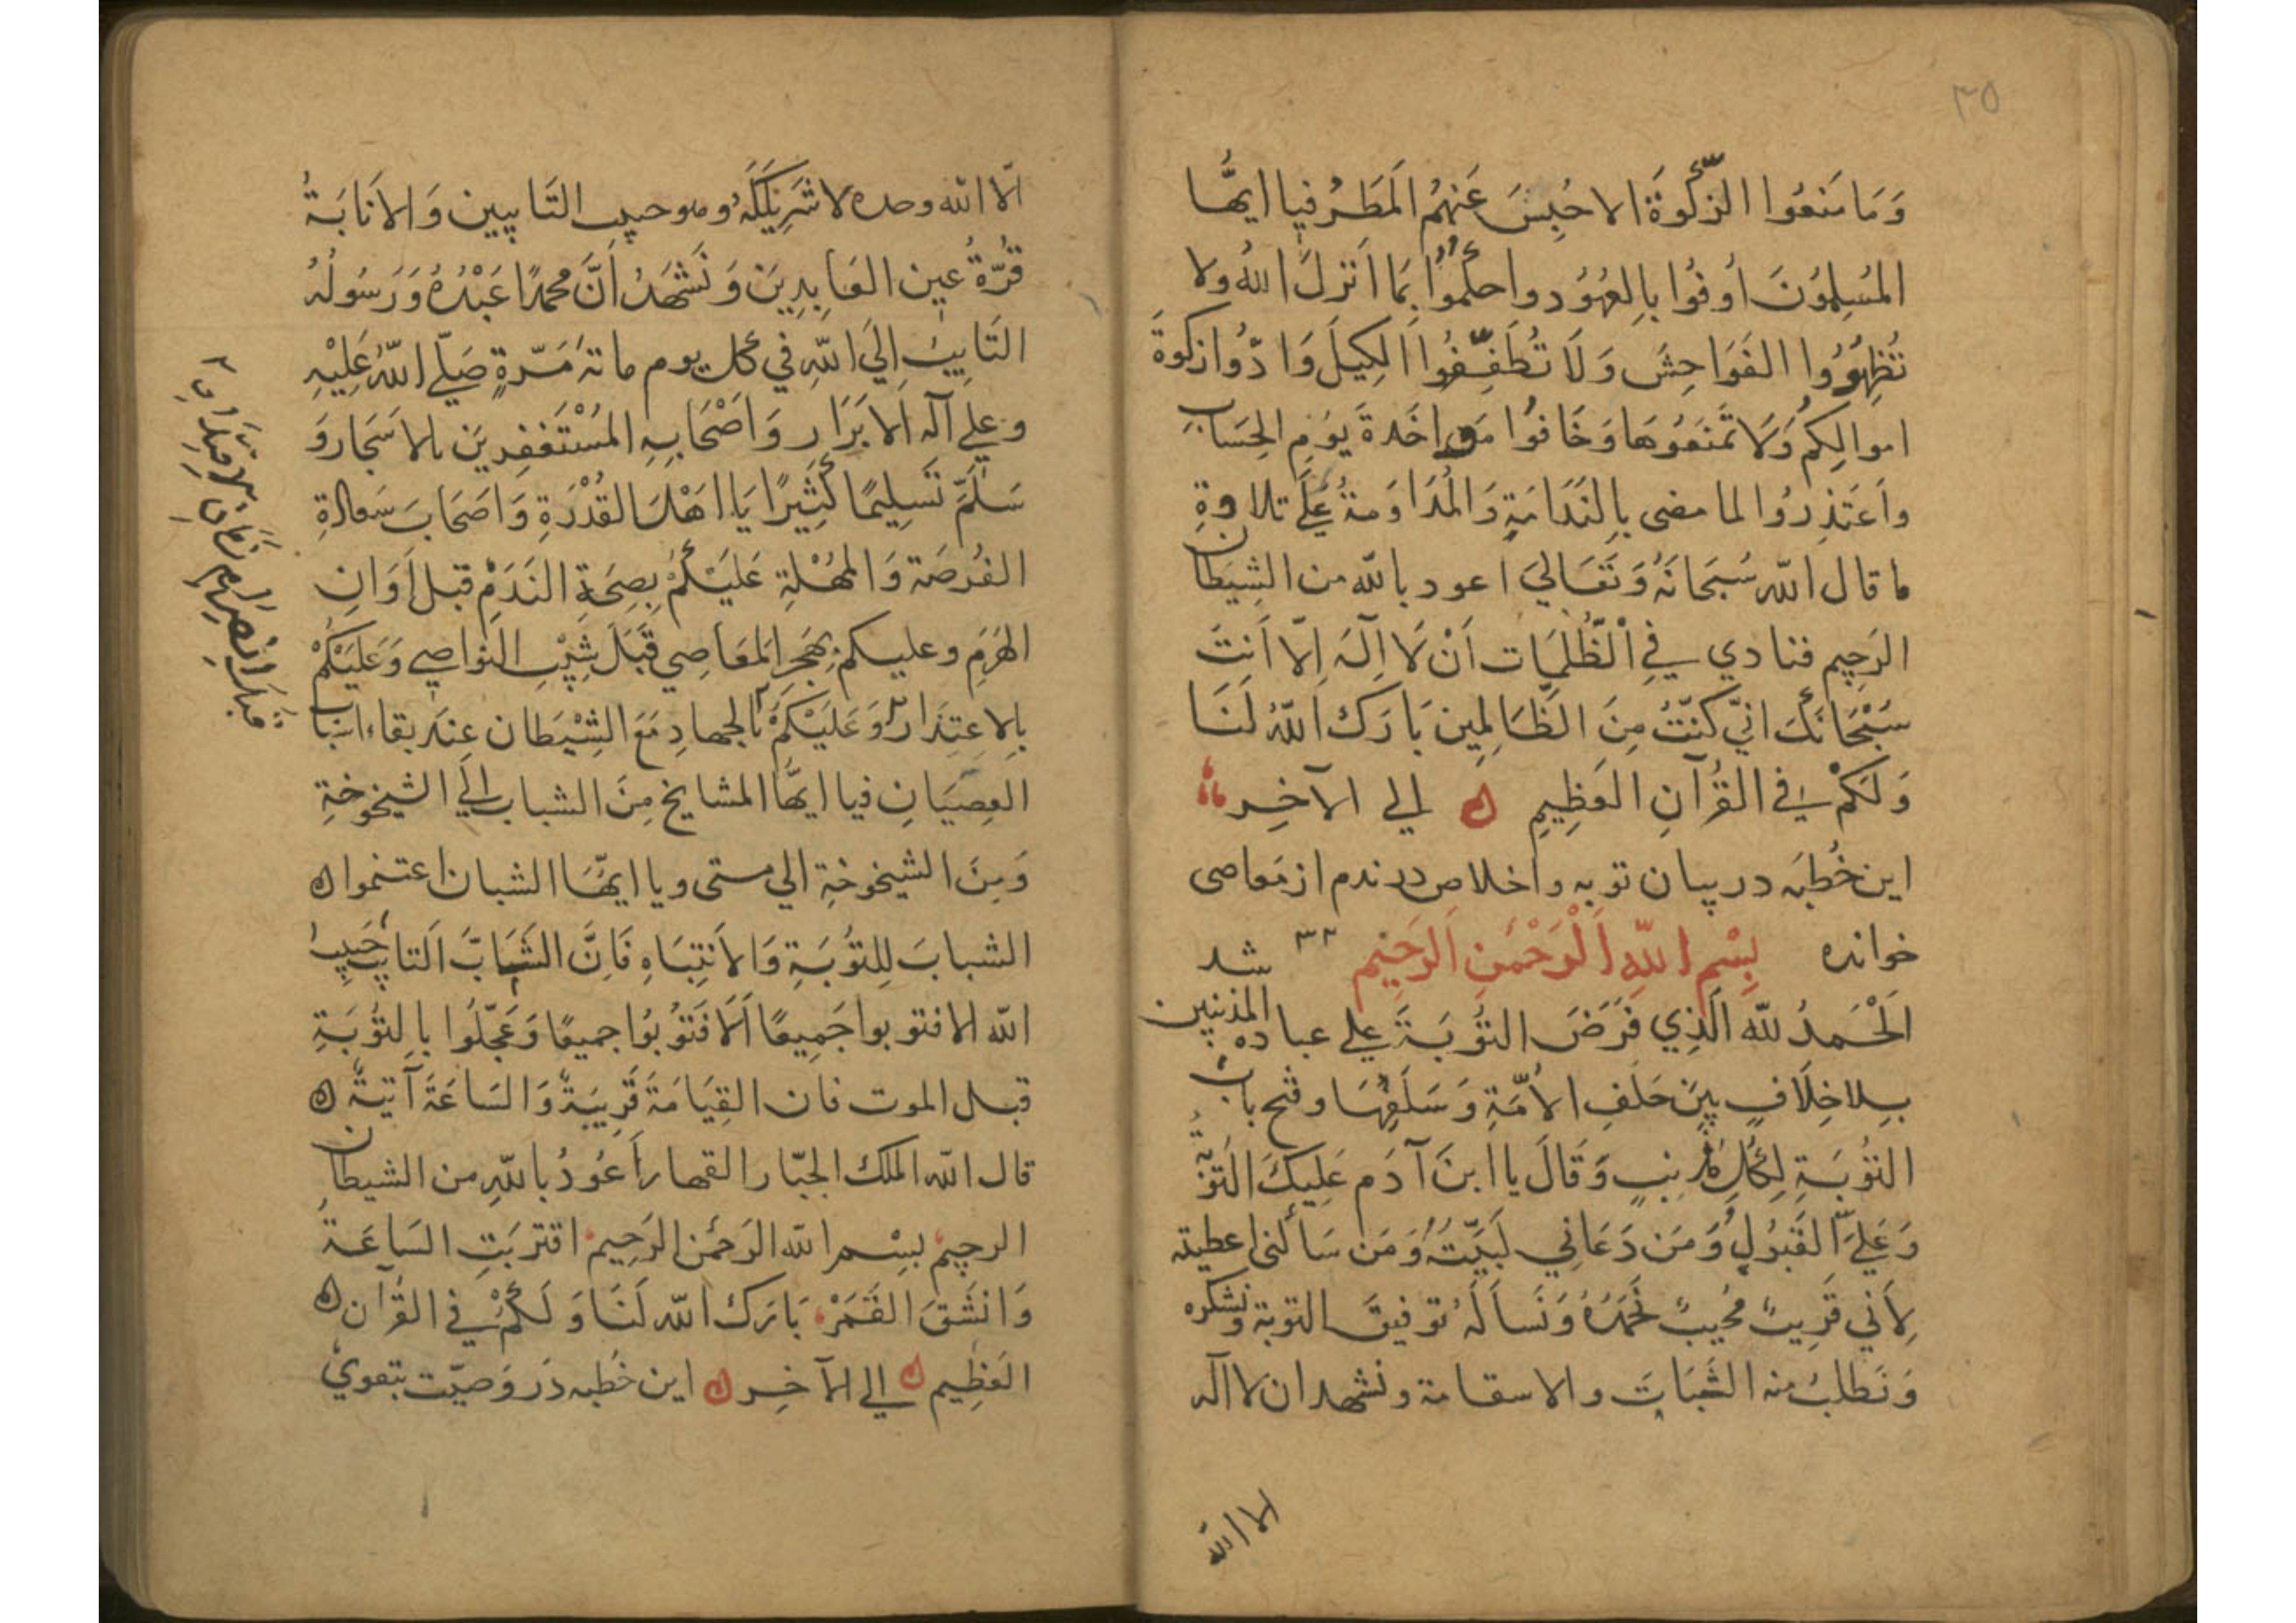 ٣٥
وَمَا مَنَعُوا الزَّكٰوةَ الا حُبِسَ عَنهُم المَطَرُ فيا ايُّها
المُسلِمُونَ اَوفُوا بِالعُهُود واحكُمُوا بمَا اَنزلَ اللهُ ولا
تُظهِرُوا الفَوَاحِشَ وَلَا تُطَفِّفُوا الكِيلَ وَادُّوا زكوةَ
اموالِكُم وَلَا تَمنَعُوهَا وَخَافُوا مواخَدةَ يَومِ الحِسَابِ
واَعتَذِرُوا لما مضى بِالنَدَامَةِ وَالمُدَاوَمةُ عَلَي تلاوةِ
ما قال الله سُبحَانَهُ وَتَعَالي اعود بالله من الشيطان
الرَجِيم فنادي في الظُّلُمَات اَنْ لَا اِلَهَ اِلّا اَنتَ
سُبْحَانَكَ انِّي كنتُ مِنَ الظَّالِمِين بَارَك اللهُ لَنَا
وَلَكُمْ في القُرآنِ العَظِيمِ ه الي الآخِر
اين خُطبَه در بيان توبه واخلاص در ندم از مَعاصى
خوانده بِسْمِ اللهِ الْرَحْمٰنِ الَرَحِيْم ٣٣ شد
اَلْحَمدُ لله الَذِي فَرَضَ التُوبَةَ علي عباده المذنبين
بِلا خِلَافٍ بَينَ خَلَفِ الاُمَّةِ وَسَلَفِهَا وفتح باب
التُوبَةِ لِكُلِ مُذنبٍ وَقَالَ يا ابنَ آدَم عَلَيكَ التَوبَةُ
وَعَلَيَّ القَبُولُ وَمَن دَعَانِي لَبَّيتُهُ وَمَن سَألَني اعطيته
لِاَني قَرِيبٌ مُجِيبٌ نَحمَدُهُ وَنَسألَهُ توفيقَ التوبة ونشكره
وَنَطلبُ منه الثَبَاتَ والاسقامة ونشهد ان لا اله
الا الله
الّا الله وحده لا شَرِيكَلَهُ وهو حبيب التَايبين وَالاَنابَةُ
قُرّةُ عين العَابِدِينَ وَنَشهَدُ اَنَّ محمدًا عَبْدُهُ وَرَسُولُهُ
التَايِبُ اِلَي اللهِ في كل يوم مائة مَرّةٍ صَلّي اللهُ عَلَيْهِ
وعلي آلِهِ الابرَار وَاَصْحَابِهِ المُسْتَغفِرينَ بالاسَحَار وَ
سَلّمَ تَسلِيمًا كَثِيرًا يَا اهْلَ القُدْرَةِ وَاصحَابَ سَعادةِ
الفُرصَة وَالمُهْلَةِ عَلَيْكُمْ بِصِحَةِ النَدَمِ قبل اَوَانِ
الهَرَمِ وعليكم بهَجرِ المَعَاصِي قَبْلَ شَيْبِ النواصِي وَعَلَيْكُمْ
بِالاِعتِذَار وَعَلَيْكُمْ بالجهادِ مَعَ الشَيْطَان عِندَ بقاء اسباب
العِصيَانِ فيا ايُّها المشايخ مِنَ الشباب الَي الشيخوخةِ
وَمِنَ الشيخوخةِ الي متى ويا ايُّها الشبان اغتنموا ه
الشبابَ لِلتُوبَةِ وَالاَنتِبَاهِ فَانَّ الشَبَابَ التايب حَبِيبُ
الله الا فتوبوا جَمِيعًا اَلَا فَتُوبُوا جميعًا وَعَجِّلُوا بالتُوبَةِ
قبل الموت فان القِيَامَةَ قَرِيبَةٌ وَالسَاعَةَ آتيةٌ ه
قال الله الملك الجبّار القهار اَعُودُ باللهِ من الشيطان
الرجيم بسْم الله الرَحمٰن الرَحِيم اقترَبَتِ السَاعَةُ
وَانشَقَ القَمَرْ بَارَك الله لَنَا وَلَكُمْ في القُرآن ه
العَظِيم ه الي الآخِر ه اين خُطبه دَر وَصيّت بتقوي